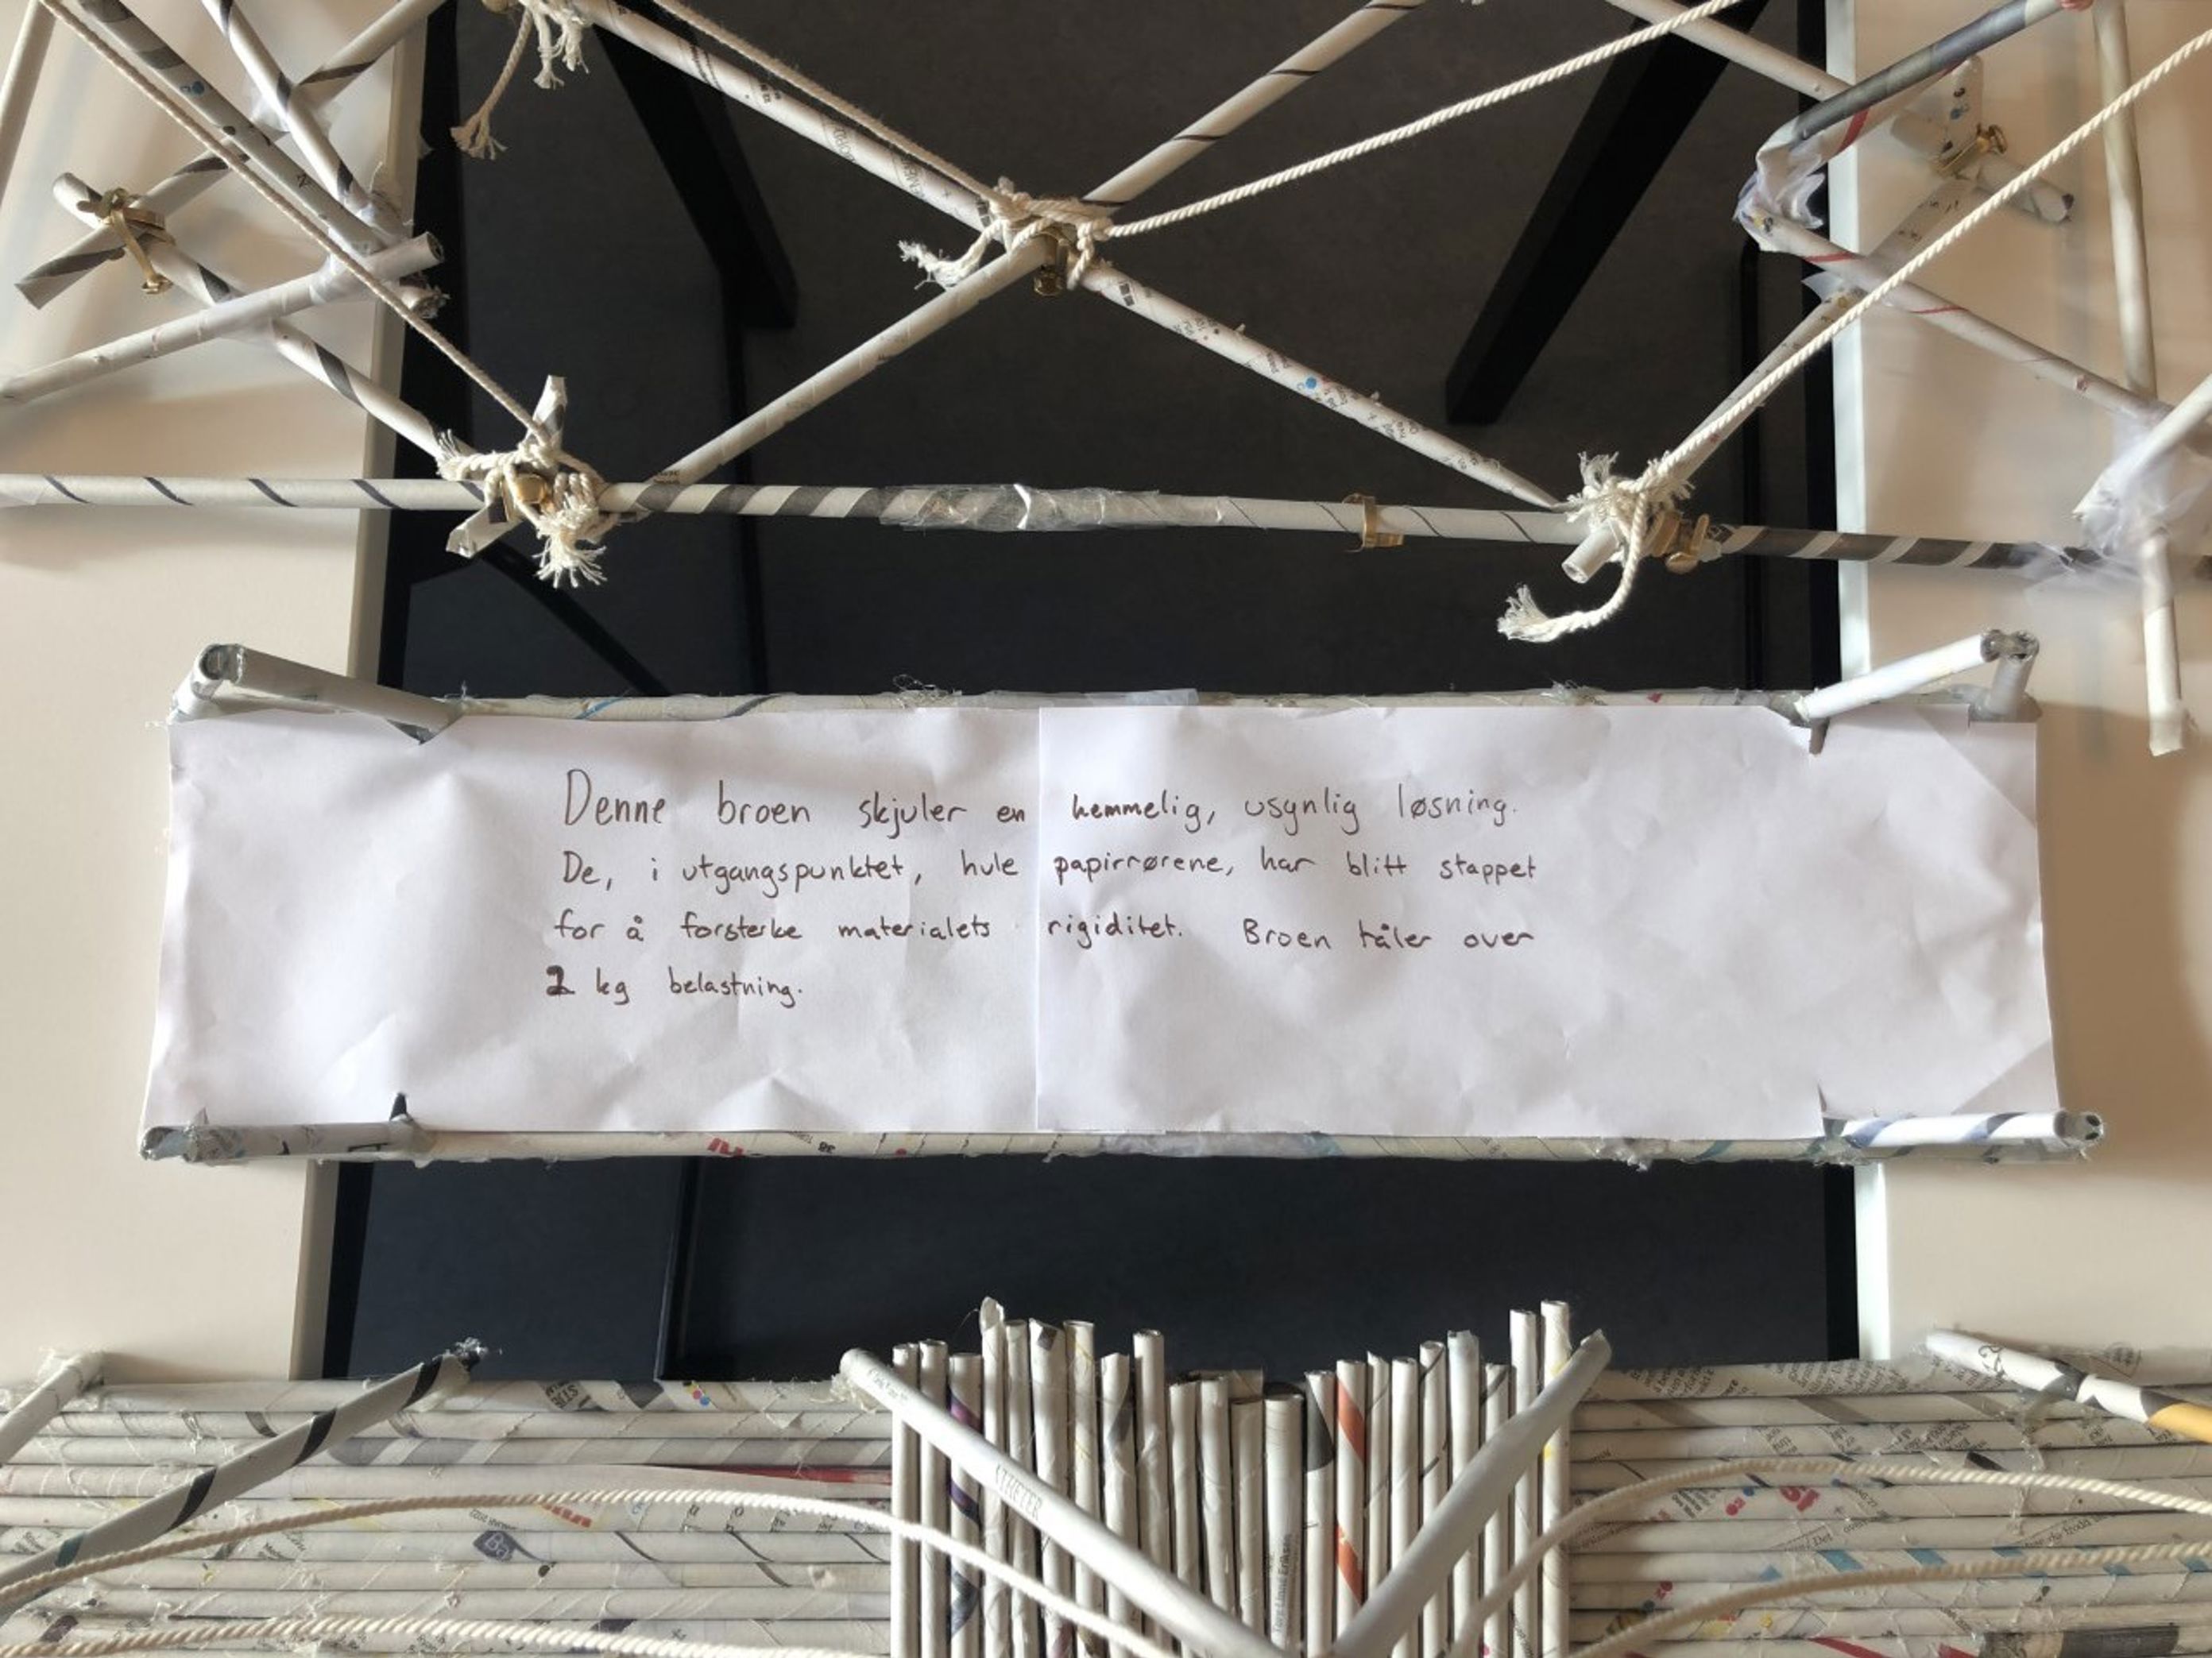 Denne broen skjuler en hemmelig, usynlig løsning.
De, i utgangspunktet, hule papirrørene, har blitt stappet
for å forsterke materialets rigiditet. Broen tåler over
2 kg belastning.
ATHETER